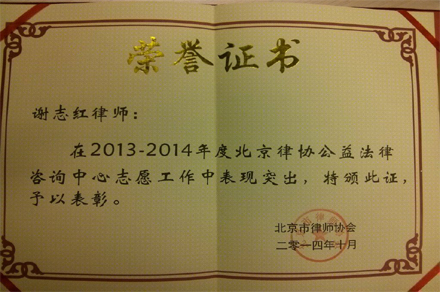 荣誉证书
谢志红律师：
在2013-2014年度北京律协公益法律
咨询中心志愿工作中表现突出，特颁此证，
予以表彰。
北京市律师协会
二零一四年十月